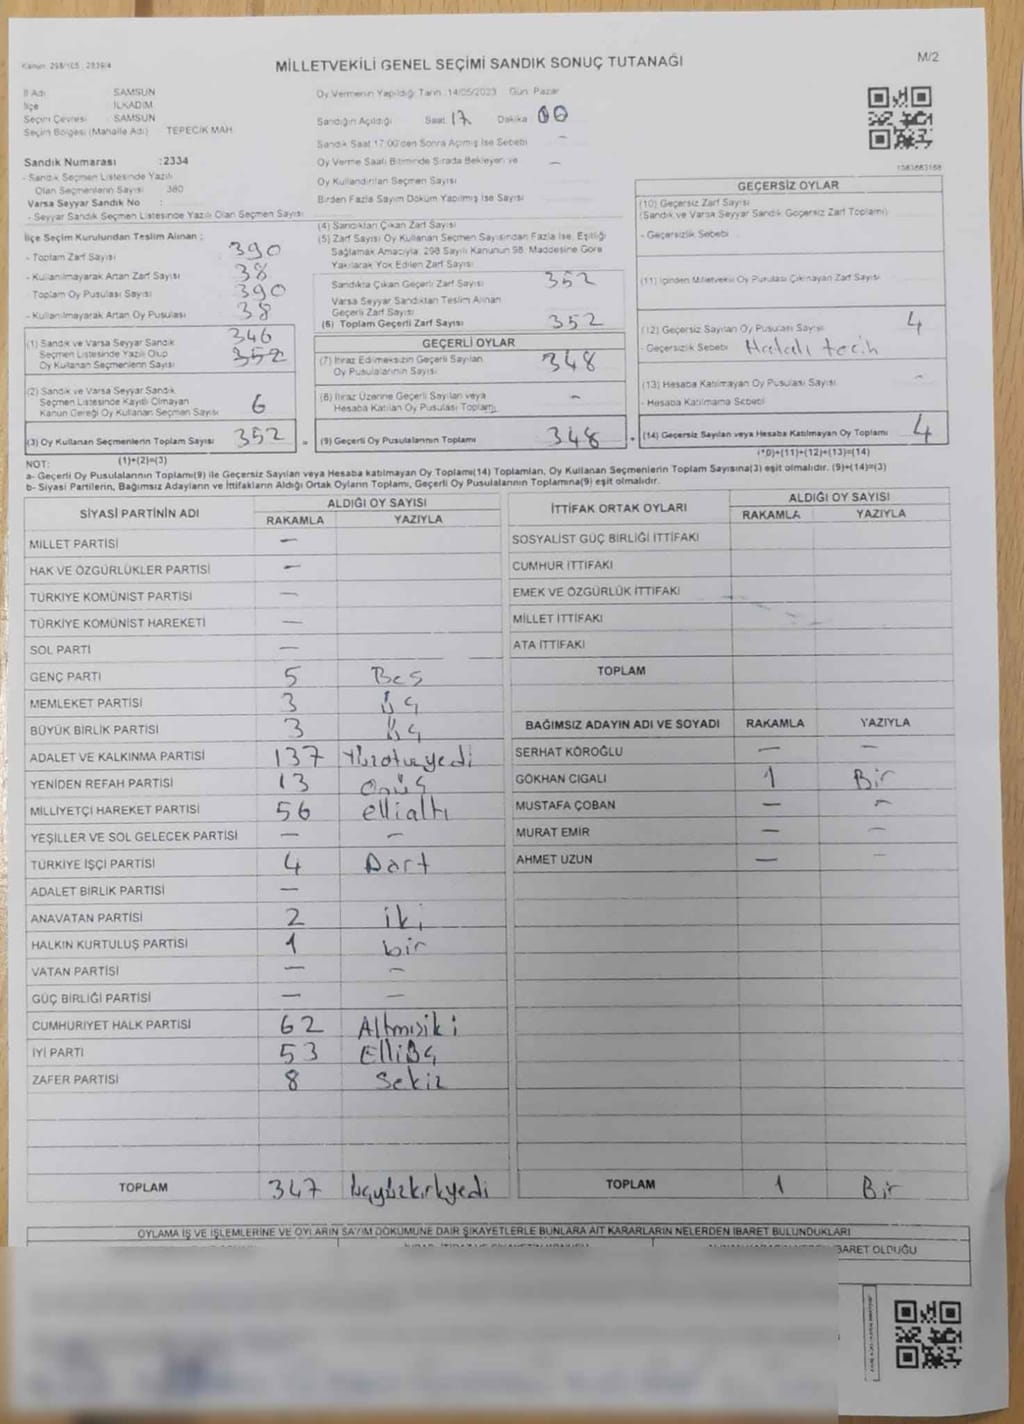 Kanun: 298/105, 2839/4
MİLLETVEKİLİ GENEL SEÇİMİ SANDIK SONUÇ TUTANAĞI
M/2
İl Adı SAMSUN
İlçe İLKADIM
Seçim Çevresi SAMSUN
Seçim Bölgesi (Mahalle Adı) TEPECİK MAH.
Sandık Numarası :2334
- Sandık Seçmen Listesinde Yazılı
Olan Seçmenlerin Sayısı 380
Varsa Seyyar Sandık No :
- Seyyar Sandık Seçmen Listesinde Yazılı Olan Seçmen Sayısı
İlçe Seçim Kurulundan Teslim Alınan :
- Toplam Zarf Sayısı 390
- Kullanılmayarak Artan Zarf Sayısı 38
- Toplam Oy Pusulası Sayısı 390
- Kullanılmayarak Artan Oy Pusulası 38
(1) Sandık ve Varsa Seyyar Sandık 346
Seçmen Listesinde Yazılı Olup 352
Oy Kullanan Seçmenlerin Sayısı
(2) Sandık ve Varsa Seyyar Sandık
Seçmen Listesinde Kayıtlı Olmayan
Kanun Gereği Oy Kullanan Seçmen Sayısı 6
(3) Oy Kullanan Seçmenlerin Toplam Sayısı 352
(1)+(2)=(3)
Oy Vermenin Yapıldığı Tarih: 14/05/2023 Gün: Pazar
Sandığın Açıldığı Saat 17 Dakika 00
Sandık Saat 17:00'den Sonra Açılmış İse Sebebi —
Oy Verme Saati Bitiminde Sırada Bekleyen ve —
Oy Kullandırılan Seçmen Sayısı
Birden Fazla Sayım Döküm Yapılmış İse Sayısı
(4) Sandıktan Çıkan Zarf Sayısı
(5) Zarf Sayısı Oy Kullanan Seçmen Sayısından Fazla İse, Eşitliği
Sağlamak Amacıyla, 298 Sayılı Kanunun 98. Maddesine Göre
Yakılarak Yok Edilen Zarf Sayısı
Sandıkta Çıkan Geçerli Zarf Sayısı 352
Varsa Seyyar Sandıktan Teslim Alınan
Geçerli Zarf Sayısı
(6) Toplam Geçerli Zarf Sayısı 352
GEÇERLİ OYLAR
(7) İtiraz Edilmeksizin Geçerli Sayılan
Oy Pusulalarının Sayısı 348
(8) İtiraz Üzerine Geçerli Sayılan veya
Hesaba Katılan Oy Pusulası Toplamı —
= (9) Geçerli Oy Pusulalarının Toplamı 348
GEÇERSİZ OYLAR
(10) Geçersiz Zarf Sayısı
(Sandık ve Varsa Seyyar Sandık Geçersiz Zarf Toplamı)
- Geçersizlik Sebebi
(11) İçinden Milletvekili Oy Pusulası Çıkmayan Zarf Sayısı
(12) Geçersiz Sayılan Oy Pusulası Sayısı 4
- Geçersizlik Sebebi Hatalı tecih
(13) Hesaba Katılmayan Oy Pusulası Sayısı —
- Hesaba Katılmama Sebebi
(14) Geçersiz Sayılan veya Hesaba Katılmayan Oy Toplamı 4
(10)+(11)+(12)+(13)=(14)
NOT:
a- Geçerli Oy Pusulalarının Toplamı(9) ile Geçersiz Sayılan veya Hesaba katılmayan Oy Toplamı(14) Toplamları, Oy Kullanan Seçmenlerin Toplam Sayısına(3) eşit olmalıdır. (9)+(14)=(3)
b- Siyasi Partilerin, Bağımsız Adayların ve İttifakların Aldığı Ortak Oyların Toplamı, Geçerli Oy Pusulalarının Toplamına(9) eşit olmalıdır.
SİYASİ PARTİNİN ADI ALDIĞI OY SAYISI
RAKAMLA YAZIYLA
MİLLET PARTİSİ —
HAK VE ÖZGÜRLÜKLER PARTİSİ —
TÜRKİYE KOMÜNİST PARTİSİ —
TÜRKİYE KOMÜNİST HAREKETİ —
SOL PARTİ —
GENÇ PARTİ 5 Beş
MEMLEKET PARTİSİ 3 Üç
BÜYÜK BİRLİK PARTİSİ 3 Üç
ADALET VE KALKINMA PARTİSİ 137 Yüzotuzyedi
YENİDEN REFAH PARTİSİ 13 Onüç
MİLLİYETÇİ HAREKET PARTİSİ 56 ellialtı
YEŞİLLER VE SOL GELECEK PARTİSİ — —
TÜRKİYE İŞÇİ PARTİSİ 4 Dört
ADALET BİRLİK PARTİSİ —
ANAVATAN PARTİSİ 2 iki
HALKIN KURTULUŞ PARTİSİ 1 bir
VATAN PARTİSİ — —
GÜÇ BİRLİĞİ PARTİSİ — —
CUMHURİYET HALK PARTİSİ 62 Altmışiki
İYİ PARTİ 53 Elliüç
ZAFER PARTİSİ 8 Sekiz
TOPLAM 347 üçyüzkırkyedi
İTTİFAK ORTAK OYLARI ALDIĞI OY SAYISI
RAKAMLA YAZIYLA
SOSYALİST GÜÇ BİRLİĞİ İTTİFAKI
CUMHUR İTTİFAKI
EMEK VE ÖZGÜRLÜK İTTİFAKI
MİLLET İTTİFAKI
ATA İTTİFAKI
TOPLAM
BAĞIMSIZ ADAYIN ADI VE SOYADI RAKAMLA YAZIYLA
SERHAT KÖROĞLU — —
GÖKHAN CIGALI 1 Bir
MUSTAFA ÇOBAN — —
MURAT EMİR — —
AHMET UZUN — —
TOPLAM 1 Bir
OYLAMA İŞ VE İŞLEMLERİNE VE OYLARIN SAYIM DÖKÜMÜNE DAİR ŞİKAYETLERLE BUNLARA AİT KARARLARIN NELERDEN İBARET BULUNDUKLARI
BARET OLDUĞU